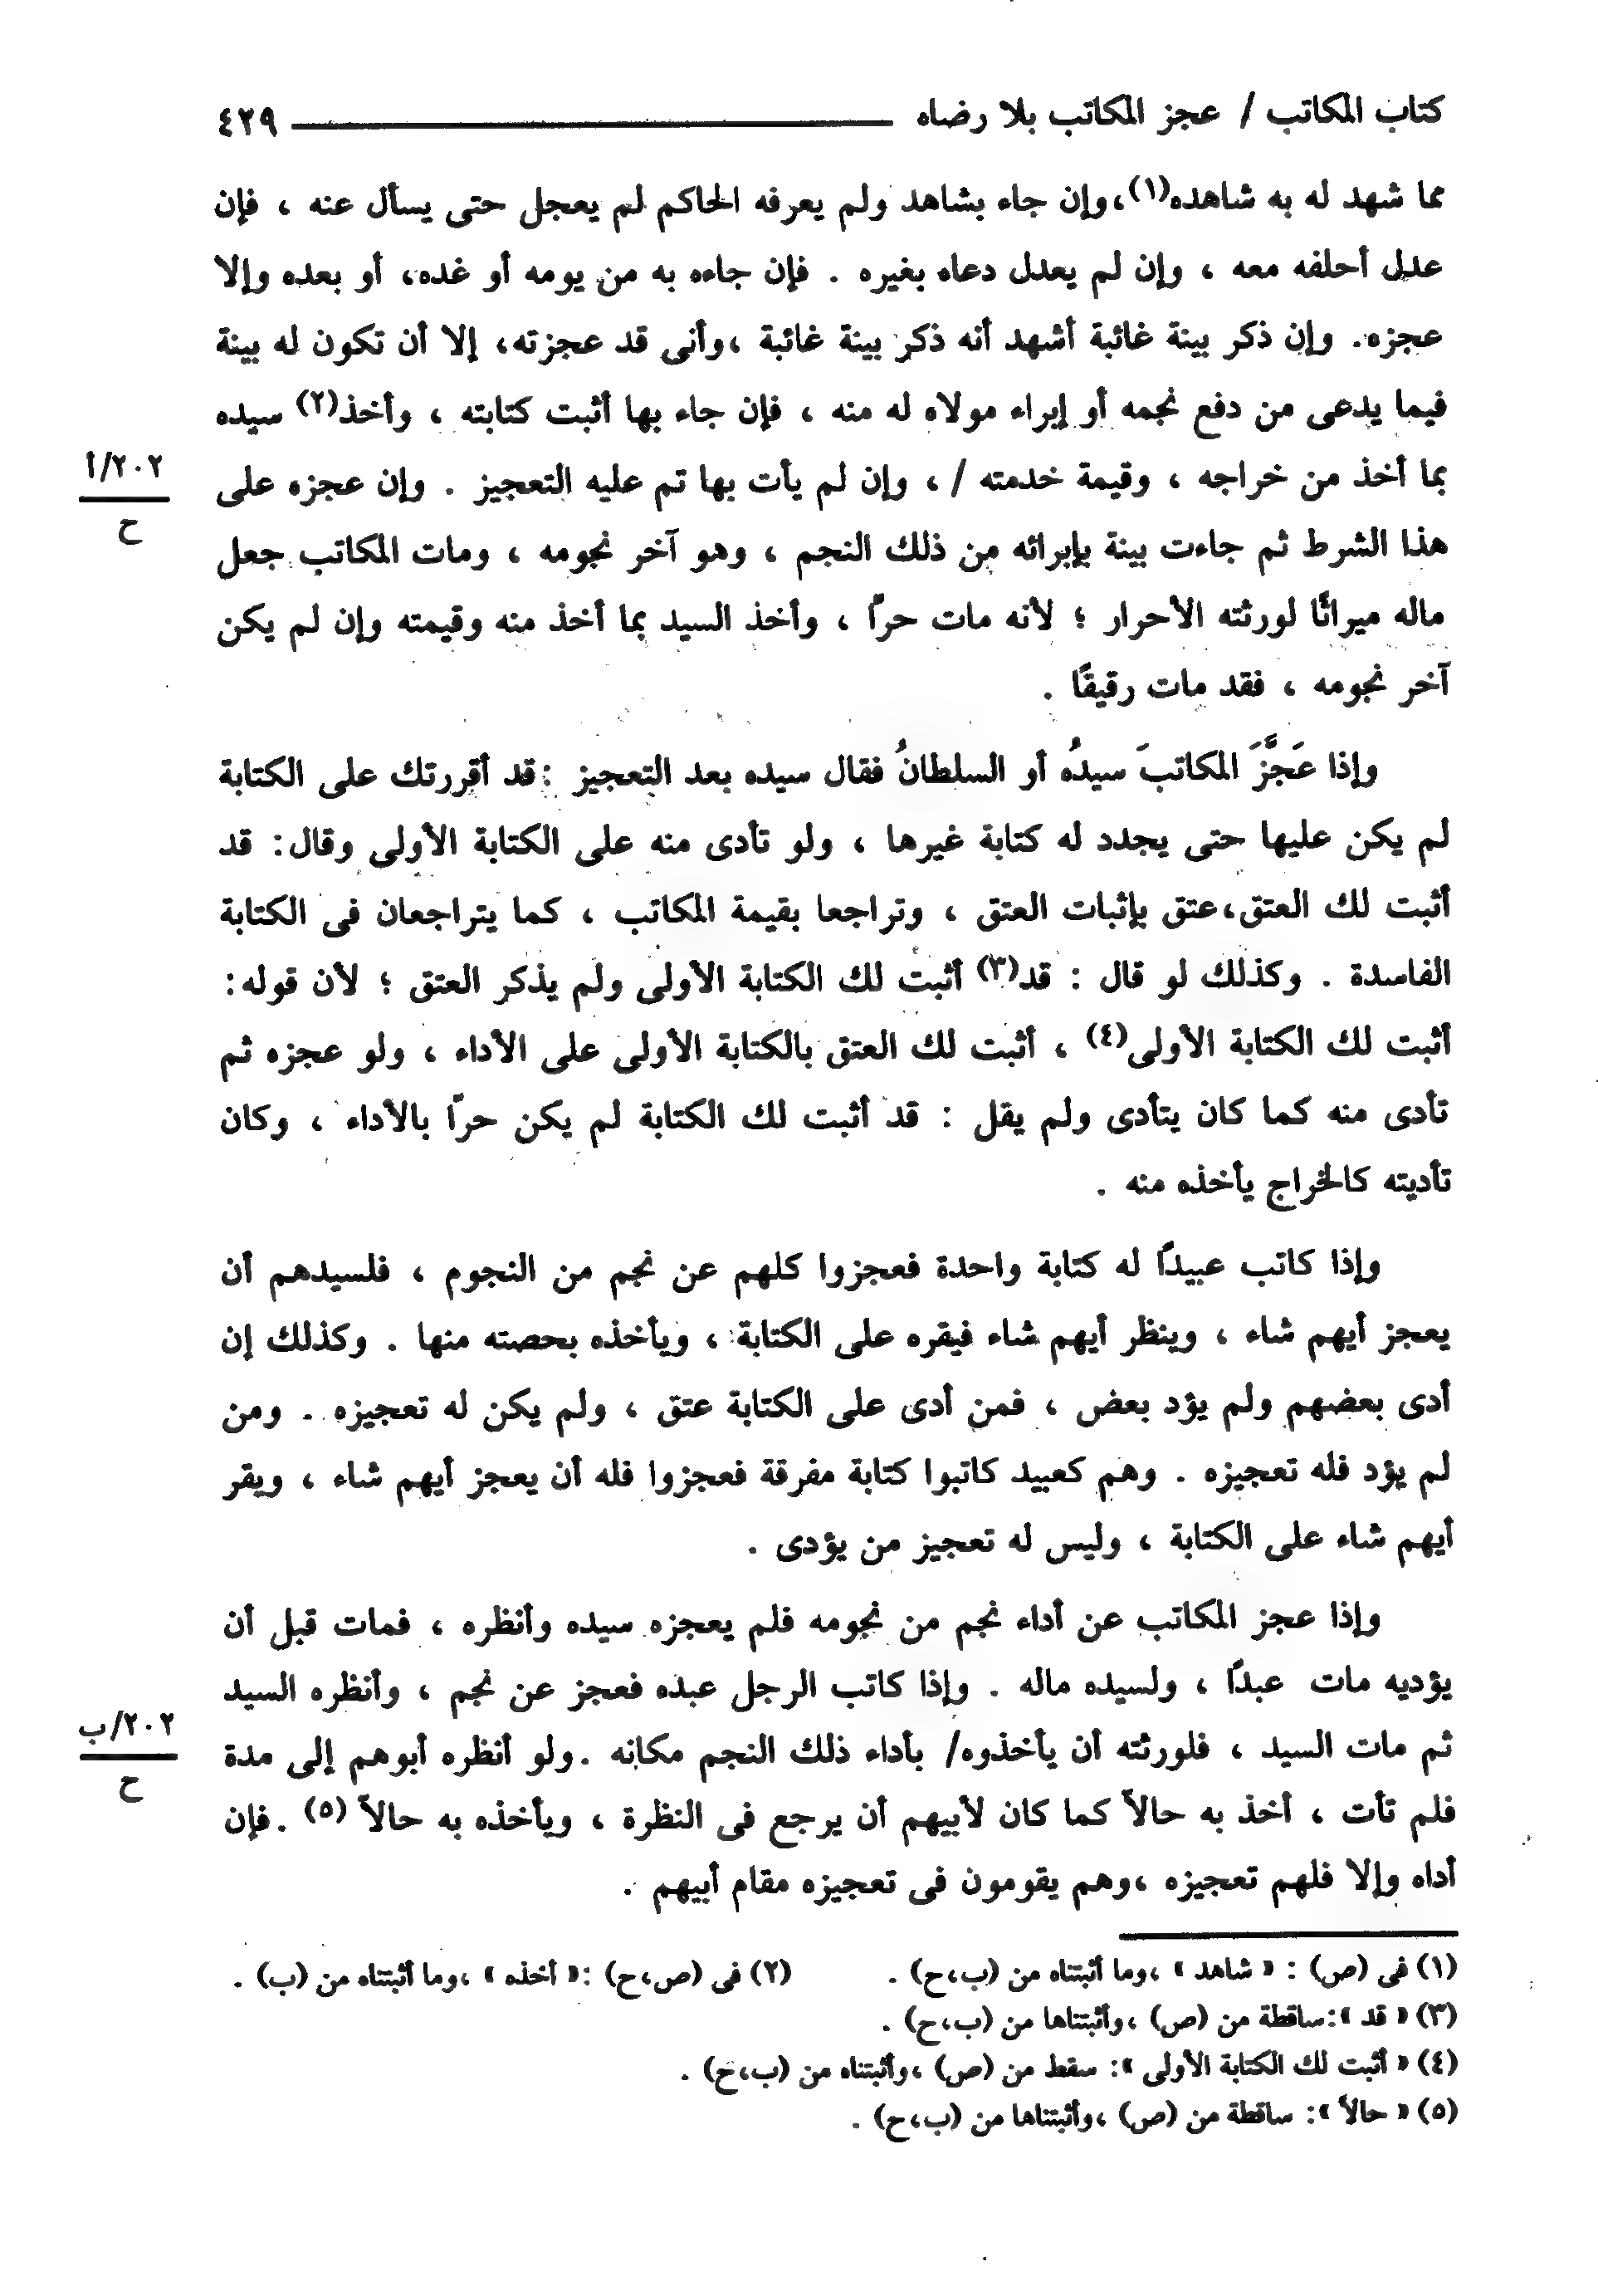 كتاب المكاتب / عجز المكاتب بلا رضاه ٤٢٩
مما شهد له به شاهده(١)،وإن جاء بشاهد ولم يعرفه الحاكم لم يعجل حتى يسأل عنه ، فإن
عدل أحلفه معه ، وإن لم يعدل دعاه بغيره . فإن جاءه به من يومه أو غده، أو بعده وإلا
عجزه. وإن ذكر بينة غائبة أشهد أنه ذكر بينة غائبة ،وأنى قد عجزته، إلا أن تكون له بينة
فيما يدعى من دفع نجمه أو إبراء مولاه له منه ، فإن جاء بها أثبت كتابته ، وأخذ(٢) سيده
بما أخذ من خراجه ، وقيمة خدمته /، وإن لم يأت بها تم عليه التعجيز . وإن عجزه على
٢٠٢/أ
ح
هذا الشرط ثم جاءت بينة بإبرائه من ذلك النجم ، وهو آخر نجومه ، ومات المكاتب جعل
ماله ميراثًا لورثته الأحرار ؛ لأنه مات حرًا ، وأخذ السيد بما أخذ منه وقيمته وإن لم يكن
آخر نجومه ، فقد مات رقيقًا .
وإذا عَجَّزَ المكاتبَ سيدُه أو السلطانُ فقال سيده بعد التعجيز :قد أقررتك على الكتابة
لم يكن عليها حتى يجدد له كتابة غيرها ، ولو تأدى منه على الكتابة الأولى وقال: قد
أثبت لك العتق،عتق بإثبات العتق ، وتراجعا بقيمة المكاتب ، كما يتراجعان فى الكتابة
الفاسدة . وكذلك لو قال : قد(٣) أثبت لك الكتابة الأولى ولم يذكر العتق ؛ لأن قوله:
أثبت لك الكتابة الأولى(٤) ، أثبت لك العتق بالكتابة الأولى على الأداء ، ولو عجزه ثم
تأدى منه كما كان يتأدى ولم يقل : قد أثبت لك الكتابة لم يكن حرًا بالأداء ، وكان
تأديته كالخراج يأخذه منه .
وإذا كاتب عبيدًا له كتابة واحدة فعجزوا كلهم عن نجم من النجوم ، فلسيدهم أن
يعجز أيهم شاء ، وينظر أيهم شاء فيقره على الكتابة ، ويأخذه بحصته منها . وكذلك إن
أدى بعضهم ولم يؤد بعض ، فمن أدى على الكتابة عتق ، ولم يكن له تعجيزه . ومن
لم يؤد فله تعجيزه . وهم كعبيد كاتبوا كتابة مفرقة فعجزوا فله أن يعجز أيهم شاء ، ويقر
أيهم شاء على الكتابة ، وليس له تعجيز من يؤدى .
وإذا عجز المكاتب عن أداء نجم من نجومه فلم يعجزه سيده وأنظره ، فمات قبل أن
يؤديه مات عبدًا ، ولسيده ماله . وإذا كاتب الرجل عبده فعجز عن نجم ، وأنظره السيد
ثم مات السيد ، فلورثته أن يأخذوه/ بأداء ذلك النجم مكانه .ولو أنظره أبوهم إلى مدة
٢٠٢/ب
ح
فلم تأت ، أخذ به حالاً كما كان لأبيهم أن يرجع فى النظرة ، ويأخذه به حالاً (٥) .فإن
أداه وإلا فلهم تعجيزه ،وهم يقومون فى تعجيزه مقام أبيهم .
(١) فى (ص) : « شاهد » ،وما أثبتناه من (ب،ح) . (٢) فى (ص،ح) :« أخذه » ،وما أثبتناه من (ب) .
(٣) « قد »:ساقطة من (ص) ،وأثبتناها من (ب،ح) .
(٤) « أثبت لك الكتابة الأولى »: سقط من (ص) ،وأثبتناه من (ب،ح) .
(٥) « حالاً »: ساقطة من (ص) ،وأثبتناها من (ب،ح) .